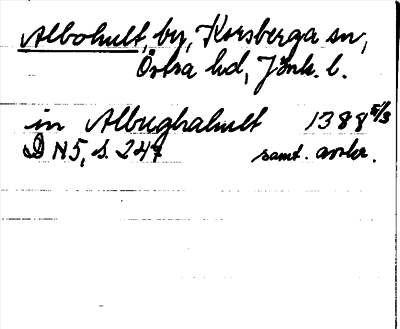 Albohult, by, Korsberga sn,
Östra hd, Jönk. l.
in Albughahult 1388 5/3
D N5, s. 247 samt. avskr.